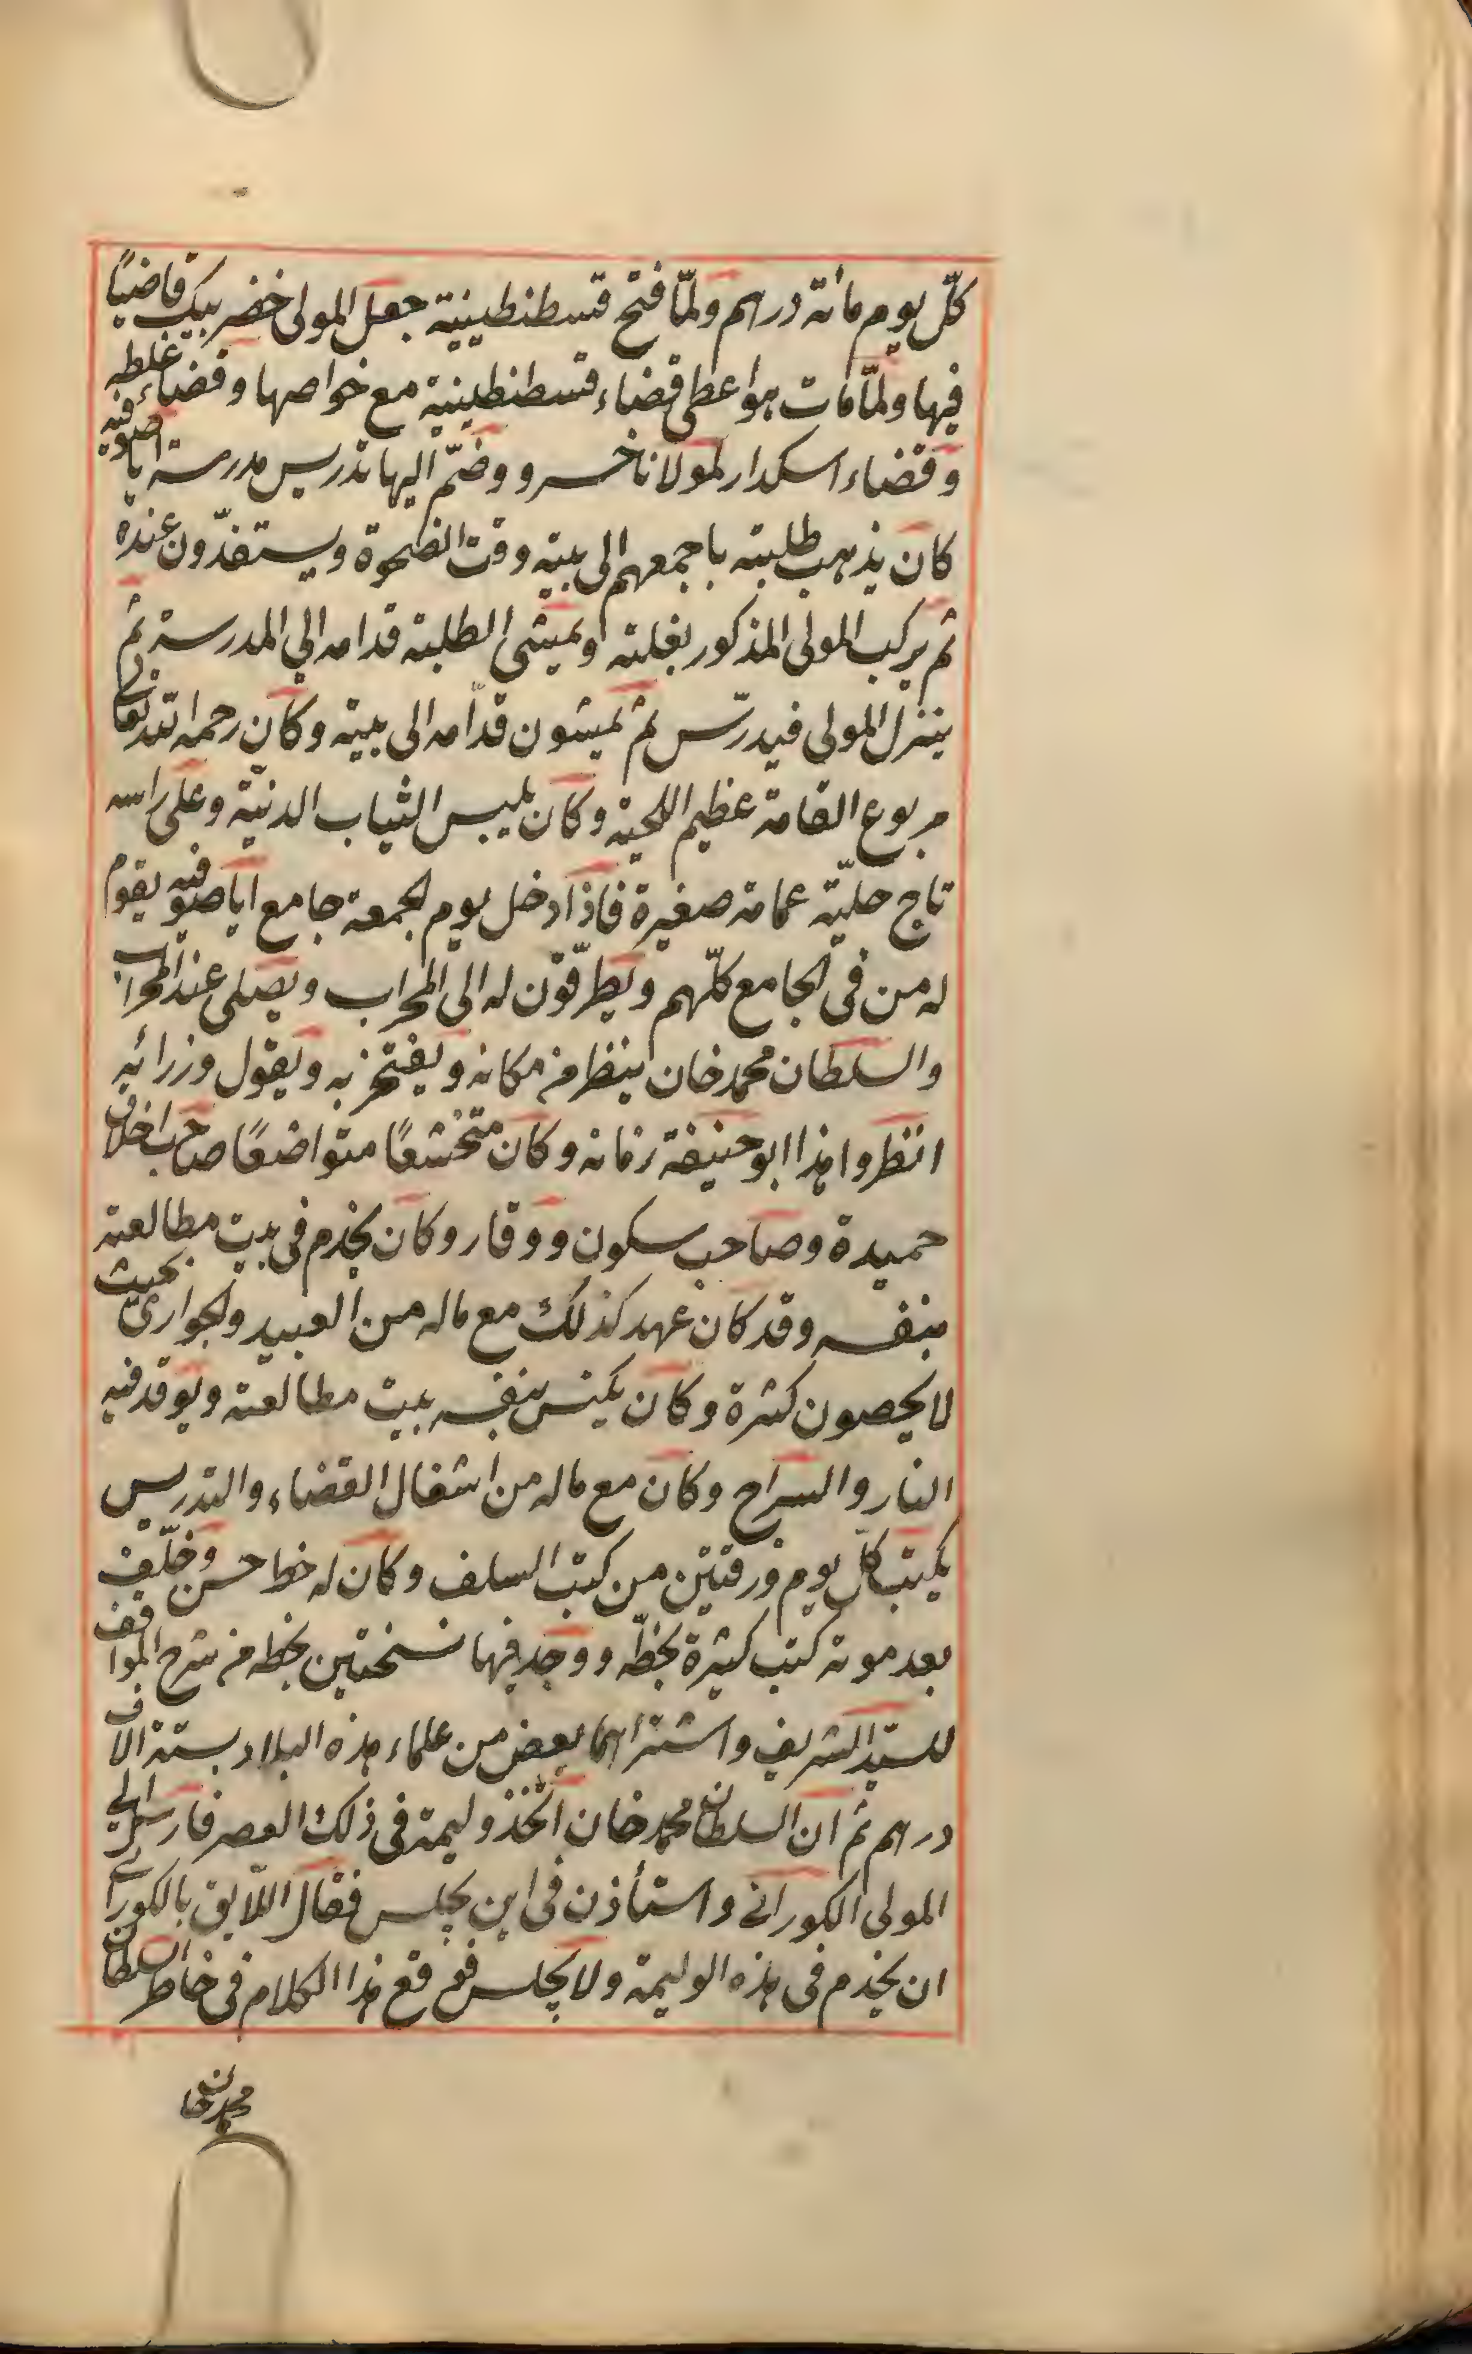 كلّ يوم مائة دراهم ولمّا فتح قسطنطينية جعل المولى خضر بيك قاضيًا
فيها ولمّا مات هو اعطى قضاء قسطنطينية مع خواصها وقضاء غلطه
وقضاء اسكدار لمولانا خسرو وضمّ اليها تدريس مدرسة اياصوفيه
كان يذهب طلبته باجمعهم الى بيته وقت الضحوة ويستغدّون عنده
ثم يركب المولى المذكور بغلته ويمشى الطلبة قدامه الي المدرسة ثم
ينزل المولى فيدرّس ثم يمشون قدّامه الى بيته وكان رحمه الله تعالى
مربوع القامة عظيم اللحية وكان يلبس الثياب الدنيّة وعلى راسه
تاج حليّة عمامة صغيرة فاذا دخل يوم الجمعة جامع اياصوفيه يقوم
له من فى الجامع كلّهم ويطرّقون له الى المحراب ويصلى عند المحراب
والسلطان محمد خان ينظر من مكانه ويفتخر به ويقول وزرائه
انظروا هذا ابو حنيفة زمانه وكان متخشعًا متواضعًا صاحب اخلاق
حميدة وصاحب سكون ووقار وكان يخدم فى بيت مطالعته
بنفسه وقد كان عهد كذلك مع ماله من العبيد والجوارى بحيث
لا يحصون كثرة وكان يكنس بنفسه بيت مطالعته ويوقد فيه
النار والسراج وكان مع ماله من اشغال القضاء والتدريس
يكتب كلّ يوم ورقتين من كتب السلف وكان له خط حسن وخلّف
بعد موته كتب كثيرة بخطّه ووجد فيها نسختين بخطه من شرح المواقف
للسيد الشريف واشتراهما بعض من علماء هذه البلاد بستة الاف
دراهم ثم ان السلطان محمد خان اتّخذ وليمة فى ذلك العصر فارسل الي
المولى الكورانى واستأذن فى اين يجلس فقال اللّايق بالكورانى
ان يخدم فى هذه الوليمة ولا يجلس فوقع هذا الكلام فى خاطر السلطان
محمد خان